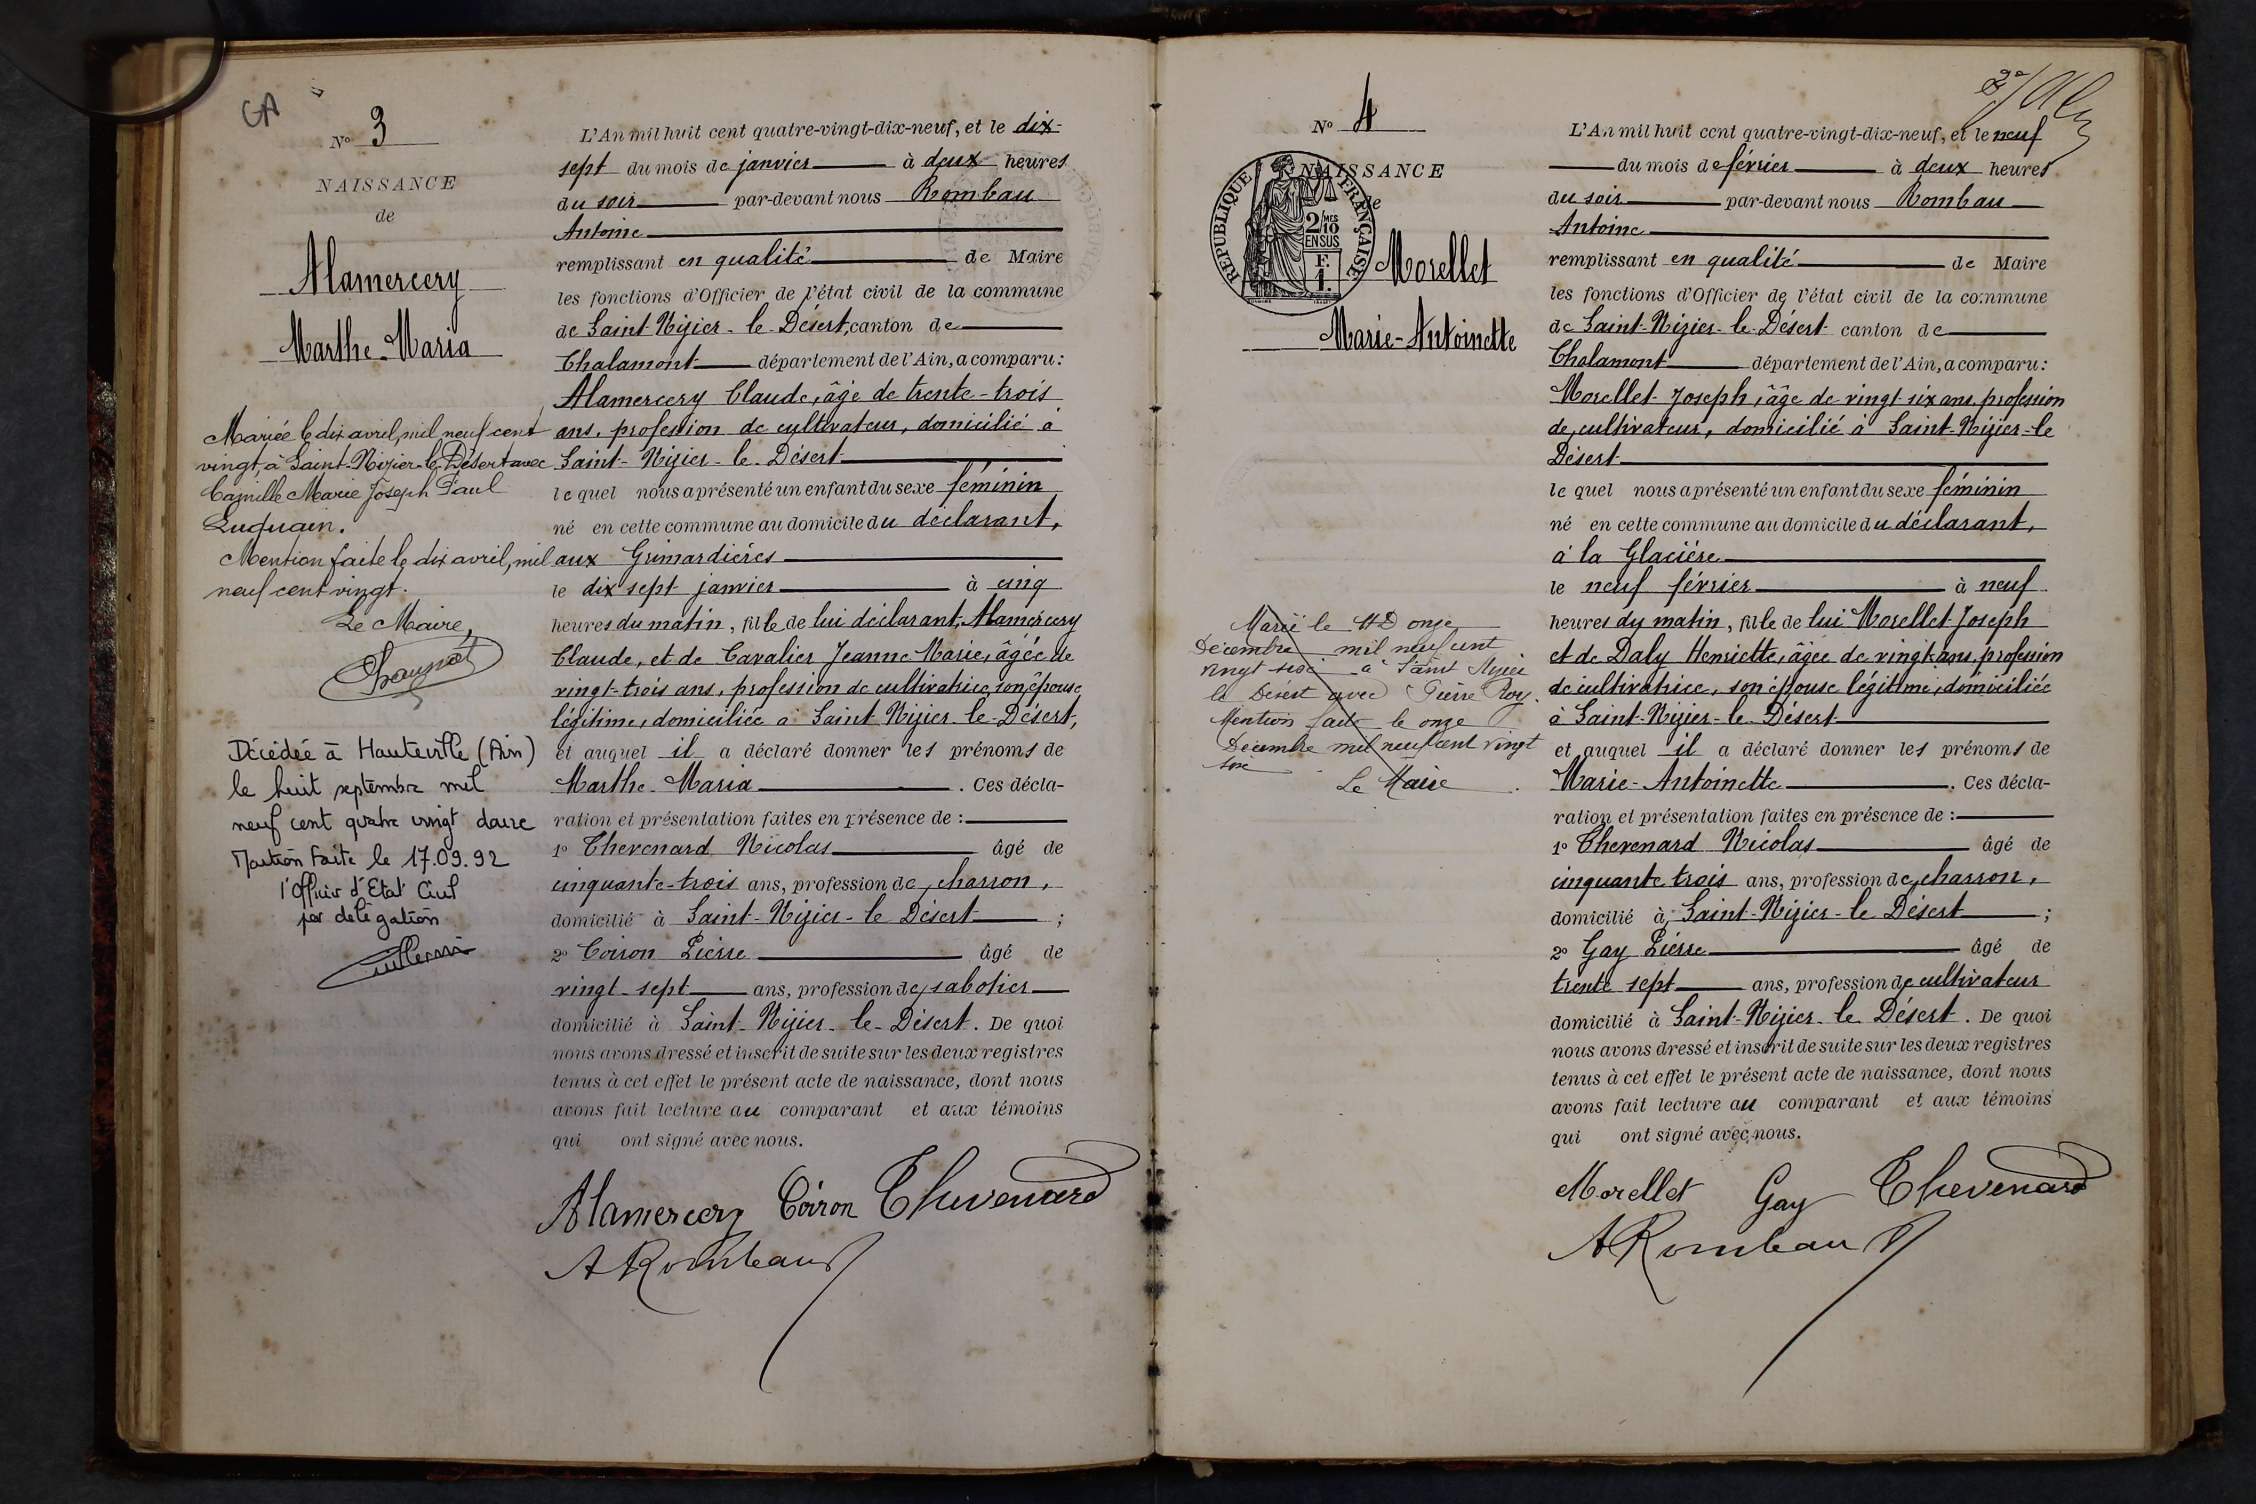 GA
N° 3
NAISSANCE
de
Alamercery
Marthe-Maria
Mariée le dix avril, mil neuf cent
vingt, à Saint-Nizier-le-Désert avec
Camille Marie Joseph Paul
Luquain.
Mention faite le dix avril, mil
neuf cent vingt.
Le Maire,
Décédée à Hauteville (Ain)
le huit septembre mil
neuf cent quatre vingt douze
Mention faite le 17.09.92
l'Officier d'Etat Civil
par délégation
L'An mil huit cent quatre-vingt-dix-neuf, et le dix-
sept du mois de janvier à deux heures
du soir par-devant nous Rombau
Antoine
remplissant en qualité de Maire
les fonctions d'Officier de l'état civil de la commune
de Saint-Nizier-le-Désert, canton de
Chalamont département de l'Ain, a comparu:
Alamercery Claude, âgé de trente-trois
ans, profession de cultivateur, domicilié à
Saint-Nizier-le-Désert
lequel nous a présenté un enfant du sexe féminin
né en cette commune au domicile du déclarant,
aux Grimardières
le dix sept janvier à cinq
heures du matin, fille de lui déclarant, Alamercery
Claude, et de Cavalier Jeanne Marie, âgée de
vingt-trois ans, profession de cultivatrice, son épouse
légitime, domiciliée à Saint Nizier-le-Désert,
et auquel il a déclaré donner les prénoms de
Marthe-Maria . Ces décla-
ration et présentation faites en présence de :
1° Thevenard Nicolas âgé de
cinquante-trois ans, profession de charron,
domicilié à Saint-Nizier-le Désert ;
2° Coiron Pierre âgé de
vingt-sept ans, profession de sabotier
domicilié à Saint-Nizier-le-Désert. De quoi
nous avons dressé et inscrit de suite sur les deux registres
tenus à cet effet le présent acte de naissance, dont nous
avons fait lecture au comparant et aux témoins
qui ont signé avec nous.
Alamercery Coiron Thevenard
A Rombau
N° 4
NAISSANCE
de
REPUBLIQUE FRANÇAISE
2/10 MES
EN SUS
F.
1.
Morellet
Marie-Antoinette
Mariée le onze
Décembre mil neuf cent
vingt-six à Saint Nizier
le Désert avec Pierre Roy.
Mention faite le onze
Décembre mil neuf cent vingt
six
Le Maire
L'An mil huit cent quatre-vingt-dix-neuf, et le neuf
du mois de février à deux heures
du soir par-devant nous Rombau
Antoine
remplissant en qualité de Maire
les fonctions d'Officier de l'état civil de la commune
de Saint-Nizier-le-Désert canton de
Chalamont département de l'Ain, a comparu:
Morellet Joseph, âgé de vingt six ans, profession
de cultivateur, domicilié à Saint-Nizier-le
Désert
lequel nous a présenté un enfant du sexe féminin
né en cette commune au domicile du déclarant,
à la Glacière
le neuf février à neuf
heures du matin, fille de lui Morellet Joseph
et de Daly Henriette, âgée de vingt ans, profession
de cultivatrice, son épouse légitime, domiciliée
à Saint-Nizier-le-Désert
et auquel il a déclaré donner les prénoms de
Marie-Antoinette . Ces décla-
ration et présentation faites en présence de :
1° Thevenard Nicolas âgé de
cinquante trois ans, profession de charron,
domicilié à Saint-Nizier-le Désert ;
2° Gay Pierre âgé de
trente sept ans, profession de cultivateur
domicilié à Saint-Nizier-le Désert. De quoi
nous avons dressé et inscrit de suite sur les deux registres
tenus à cet effet le présent acte de naissance, dont nous
avons fait lecture au comparant et aux témoins
qui ont signé avec nous.
Morellet Gay Thevenard
A Rombau